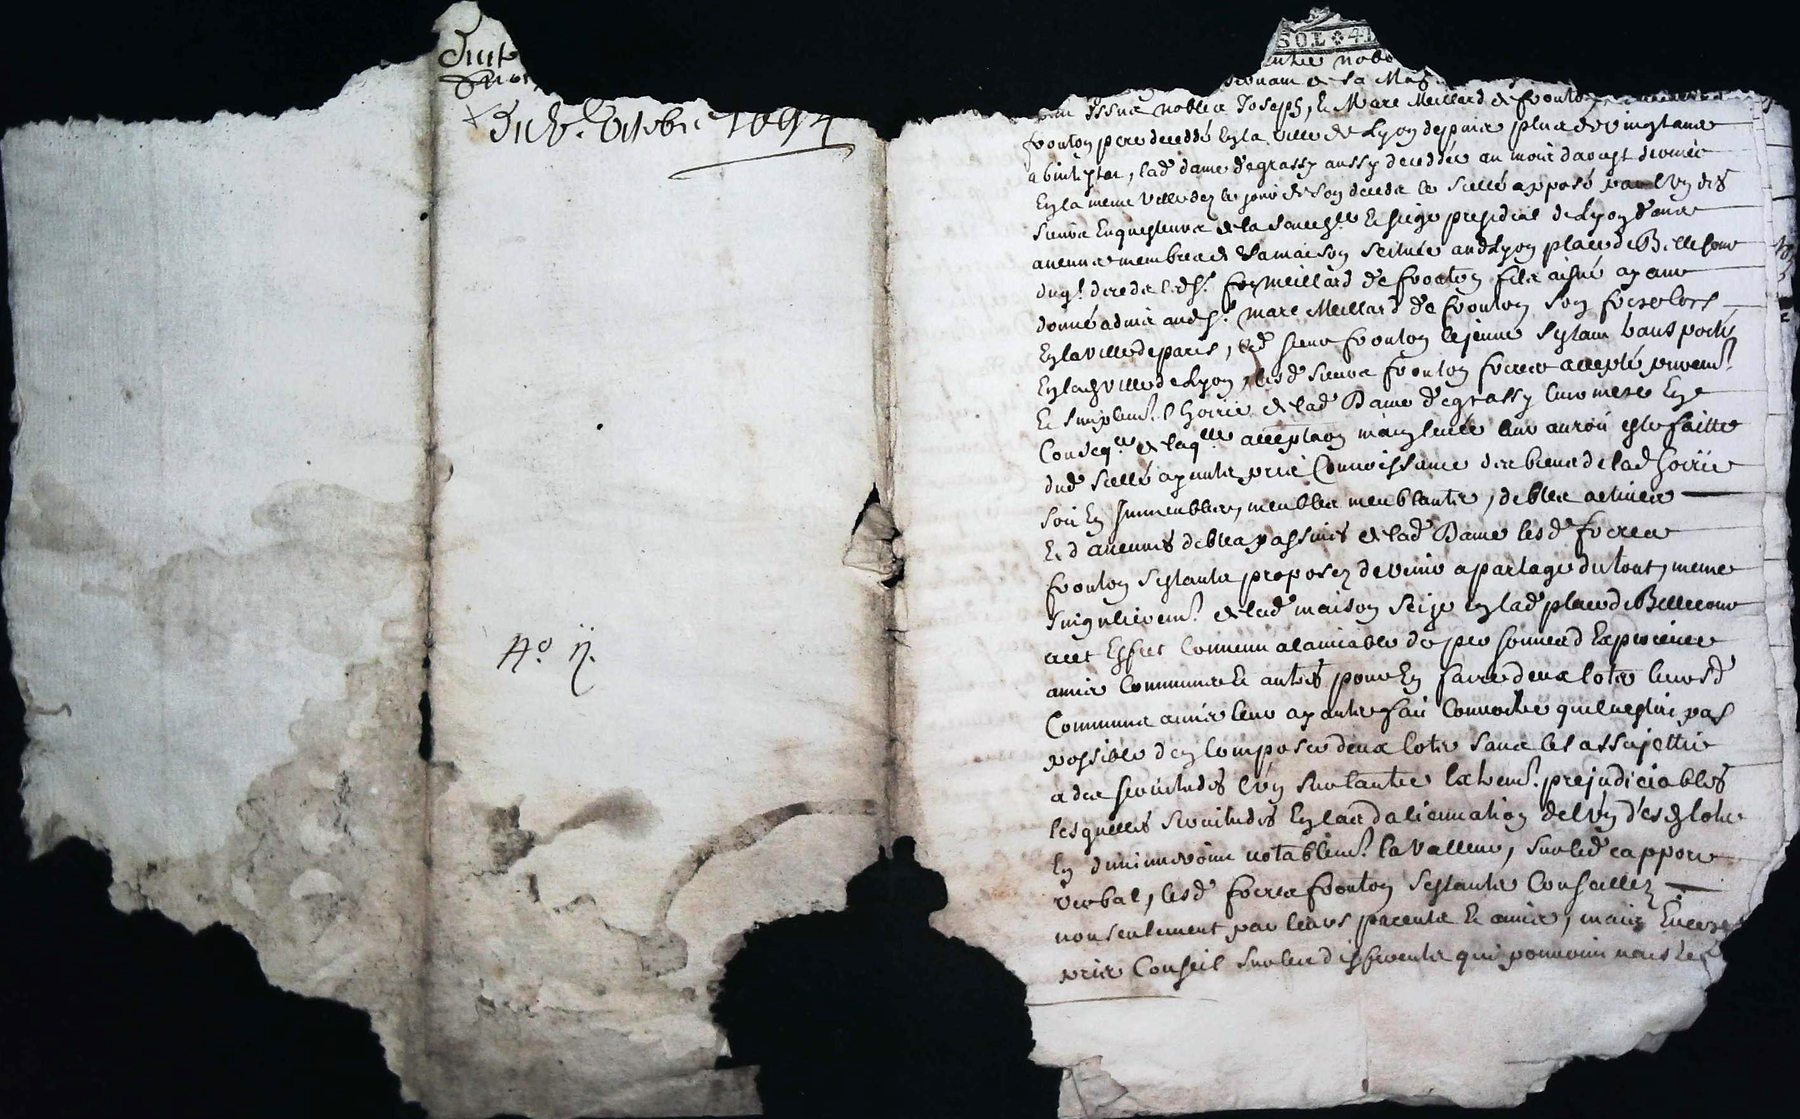 Du 8e. octobre 1694
No. ij.
SOL 4
entre nobl
de sa Maj
issus nobles Joseph, & Marc Meillard de fronton
fronton pere deceddé en la ville de Lyon depuis plus de vingt ans
ab intestat, lad. dame degrassy aussy deceddée au mois daoust dernier
en la meme ville dez le jour de son decedz le scellé apposé par l'un des
sieurs enquesteurs de la senechlle & siege presidial de Lyon dans
aucuns membres de sa maison scituée aud. Lyon place de Bellecour
duql. decedz led. sr. Meillard de fronton fils aisné ayant
donné advis aud. sr. Marc Meillard de fronton son frere lors
en la ville de paris, led. sieur fronton le jeune s'estant transporté
en lad. ville de Lyon, lesd. sieurs fronton freres accepté purement
& simplemt. l'hoirie de lad. Dame degrassy leur mere en
conseqce de laqlle acceptaon mainlevée leur auroit esté faitte
dud. scellé ayants pris connoissance des biens de lad. hoirie
soit en immeubles, meubles meublants, debtes actives
& d'aucunes debtes passives de lad. Dame lesd. freres
fronton s'estants proposez de venir a partage du tout, meme
singulieremt. de lad. maison scize en lad. place de Bellecour
avec esfet convenu alamiable de personnes d'experience
amis communs & autres pour en faire deux lots leursd.
communs amis leur ayants fait connoitre quil n'estoit pas
possible d'en composer deux lots sans les assujettir
a des servitudes l'un sur l'autre extremt. prejudiciables
lesquelles servitudes en cas d'alienation de l'un desd. lots
en diminueroient notablemt. la valleur, sur led. rapport
verbal, lesd. freres fronton s'estants conseillez
non seulement par leurs parents & amis, mais encore
pris conseil sur les differents qui pourroient naistre